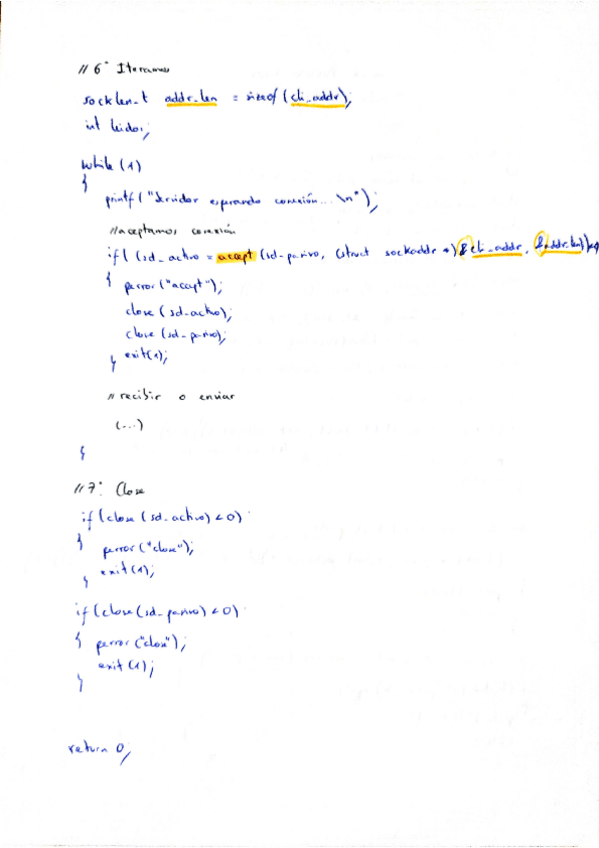 // 6º Iteramos
socklen_t addr_len = sizeof (cli_addr);
int leidos;
while (1)
{
printf ("Servidor esperando conexión... \n");
//aceptamos conexión
if( (sd_activo = accept (sd_pasivo, (struct sockaddr *) &cli_addr, &addr_len))<0)
{ perror ("accept");
close (sd_activo);
close (sd_pasivo);
} exit(1);
// recibir o enviar
(...)
}
// 7º: Close
if (close (sd_activo) < 0)
{ perror ("close");
} exit (1);
if (close (sd_pasivo) < 0)
{ perror ("close");
exit (1);
}
return 0;